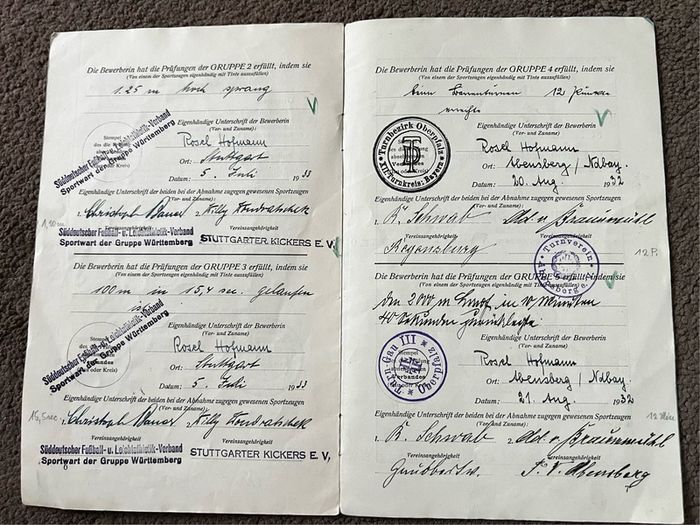 Die Bewerberin hat die Prüfungen der GRUPPE 2 erfüllt, indem sie
(Von einem der Sportzeugen eigenhändig mit Tinte auszufüllen)
1.25 m hoch sprang
Eigenhändige Unterschrift der Bewerberin
(Vor- und Zuname):
Rosel Hofmann
Ort: Stuttgart
Datum: 5. Juli 1933
Süddeutscher Fußball- u. Leichtathletik-Verband
Sportwart der Gruppe Württemberg
Eigenhändige Unterschrift der beiden bei der Abnahme zugegen gewesenen Sportzeugen
(Vor- und Zuname):
1. Christoph Willy
Vereinszugehörigkeit
Süddeutscher Fußball- u. Leichtathletik-Verband
Sportwart der Gruppe Württemberg
STUTTGARTER KICKERS E. V.
Die Bewerberin hat die Prüfungen der GRUPPE 3 erfüllt, indem sie
(Von einem der Sportzeugen eigenhändig mit Tinte auszufüllen)
100 m in 15,4 sec. gelaufen
ist
Eigenhändige Unterschrift der Bewerberin
(Vor- und Zuname):
Rosel Hofmann
Ort: Stuttgart
Datum: 5. Juli 1933
Süddeutscher Fußball- u. Leichtathletik-Verband
Sportwart der Gruppe Württemberg
Eigenhändige Unterschrift der beiden bei der Abnahme zugegen gewesenen Sportzeugen
(Vor- und Zuname):
1. Christoph Willy
Vereinszugehörigkeit
Süddeutscher Fußball- u. Leichtathletik-Verband
Sportwart der Gruppe Württemberg
STUTTGARTER KICKERS E. V.
Die Bewerberin hat die Prüfungen der GRUPPE 4 erfüllt, indem sie
(Von einem der Sportzeugen eigenhändig mit Tinte auszufüllen)
beim 12 Punkte
erreichte
Eigenhändige Unterschrift der Bewerberin
(Vor- und Zuname):
Rosel Hofmann
Ort: Abensberg / Ndbay.
Datum: 20. Aug. 1932
Turnbezirk Oberpfalz
XII. Turnkreis: Bayern
Eigenhändige Unterschrift der beiden bei der Abnahme zugegen gewesenen Sportzeugen
(Vor- und Zuname):
1. K. Schwab
Vereinszugehörigkeit
Regensburg
Turnverein
12 P.
Die Bewerberin hat die Prüfungen der GRUPPE 5 erfüllt, indem sie
(Von einem der Sportzeugen eigenhändig mit Tinte auszufüllen)
den 2000 m Lauf in 10 Minuten
40 Sekunden zurücklegte.
Eigenhändige Unterschrift der Bewerberin
(Vor- und Zuname):
Rosel Hofmann
Ort: Abensberg / Ndbay.
Datum: 21. Aug. 1932
Turn-Gau III
Oberpfalz
Eigenhändige Unterschrift der beiden bei der Abnahme zugegen gewesenen Sportzeugen
(Vor- und Zuname):
1. K. Schwab 2.
Vereinszugehörigkeit
T. V. Abensberg